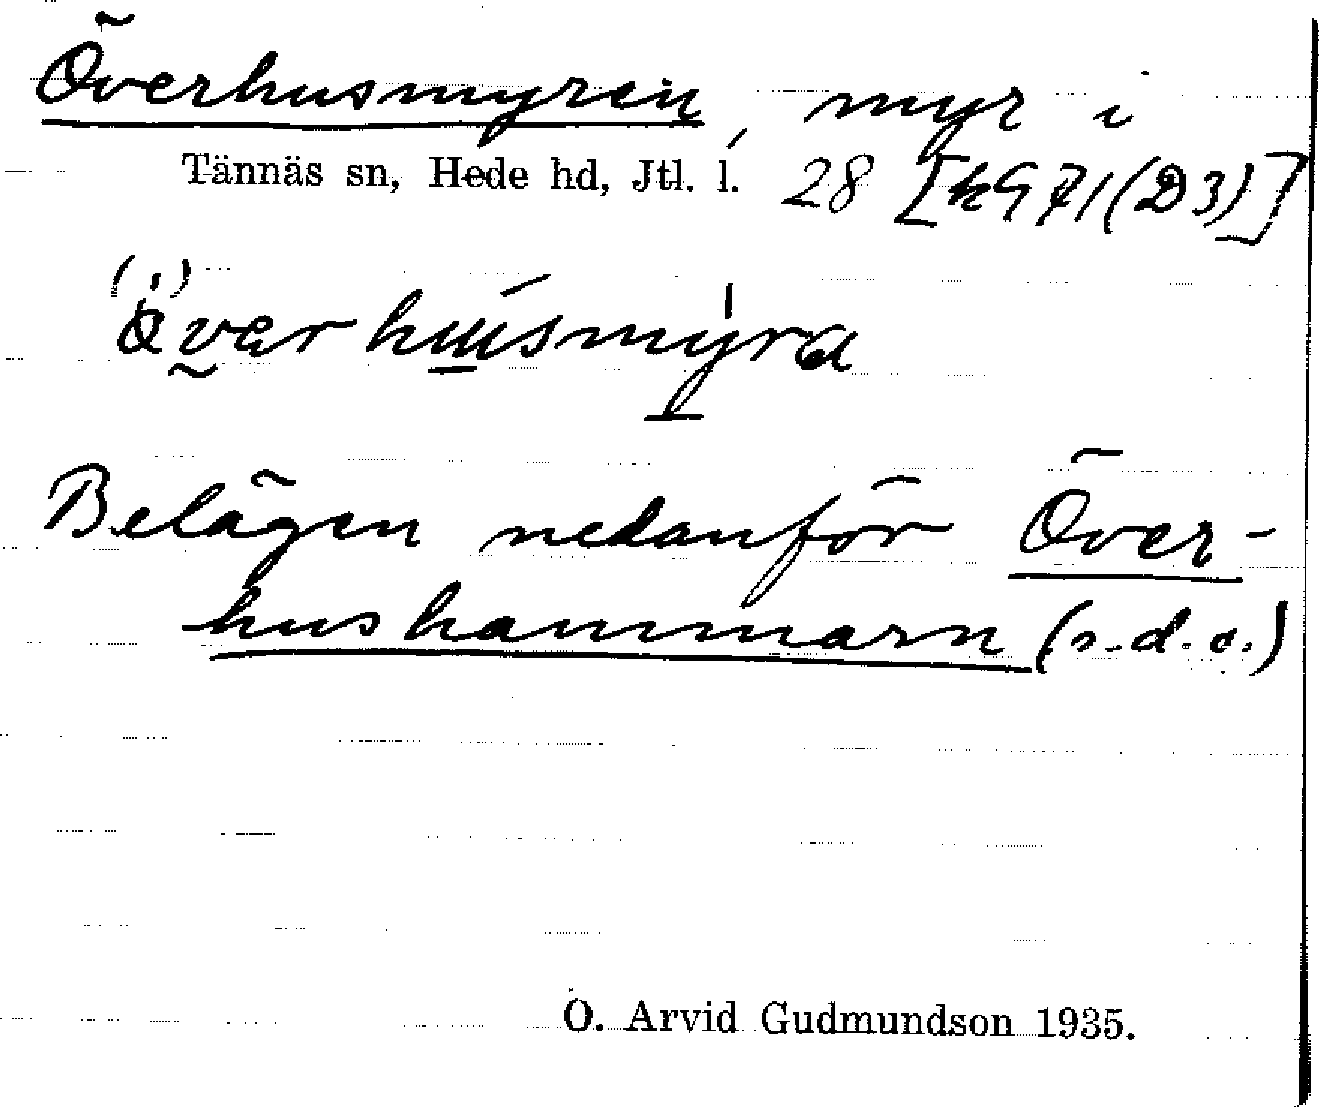 Överhusmyren, myr i
Tännäs sn, Hede hd, Jtl. l. 28 [kG71(D3)]
Belägen nedanför Över-
hushammarn (s.d.o.)
O. Arvid Gudmundson 1935.